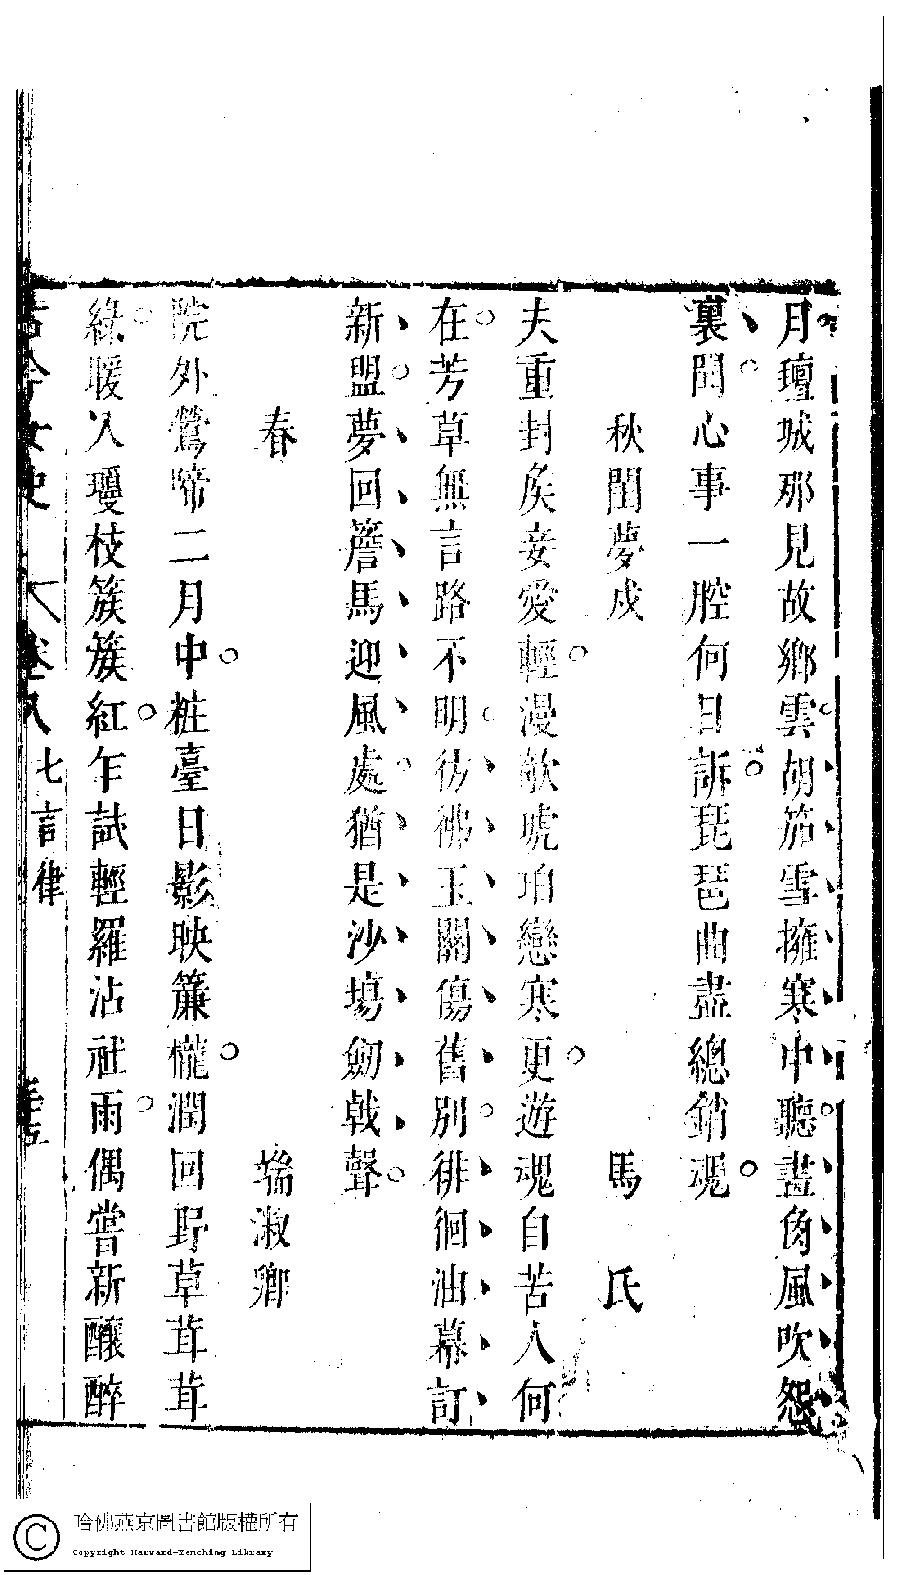 月壇城那見故鄉雲胡笳雪擁寒中聽畫角風吹怨
裏閨心事一腔何日訴琵琶曲盡總銷魂
秋閨夢戍 馬 氏
夫重封矦妾愛輕漫欹琥珀戀寒更遊魂自苦人何
在芳草無言路不明彷彿玉關傷舊別徘徊油幕訂
新盟夢回簷馬迎風處猶是沙塲劒戟聲
春 端淑卿
院外鶯啼二月中粧臺日影映簾櫳澗回野草茸茸
綠暖入瓊枝簇簇紅乍試輕羅沾社雨偶嘗新釀醉
古今女史 卷八 七言律
哈佛燕京圖書館版權所有
Copyright Harvard-Yenching Library